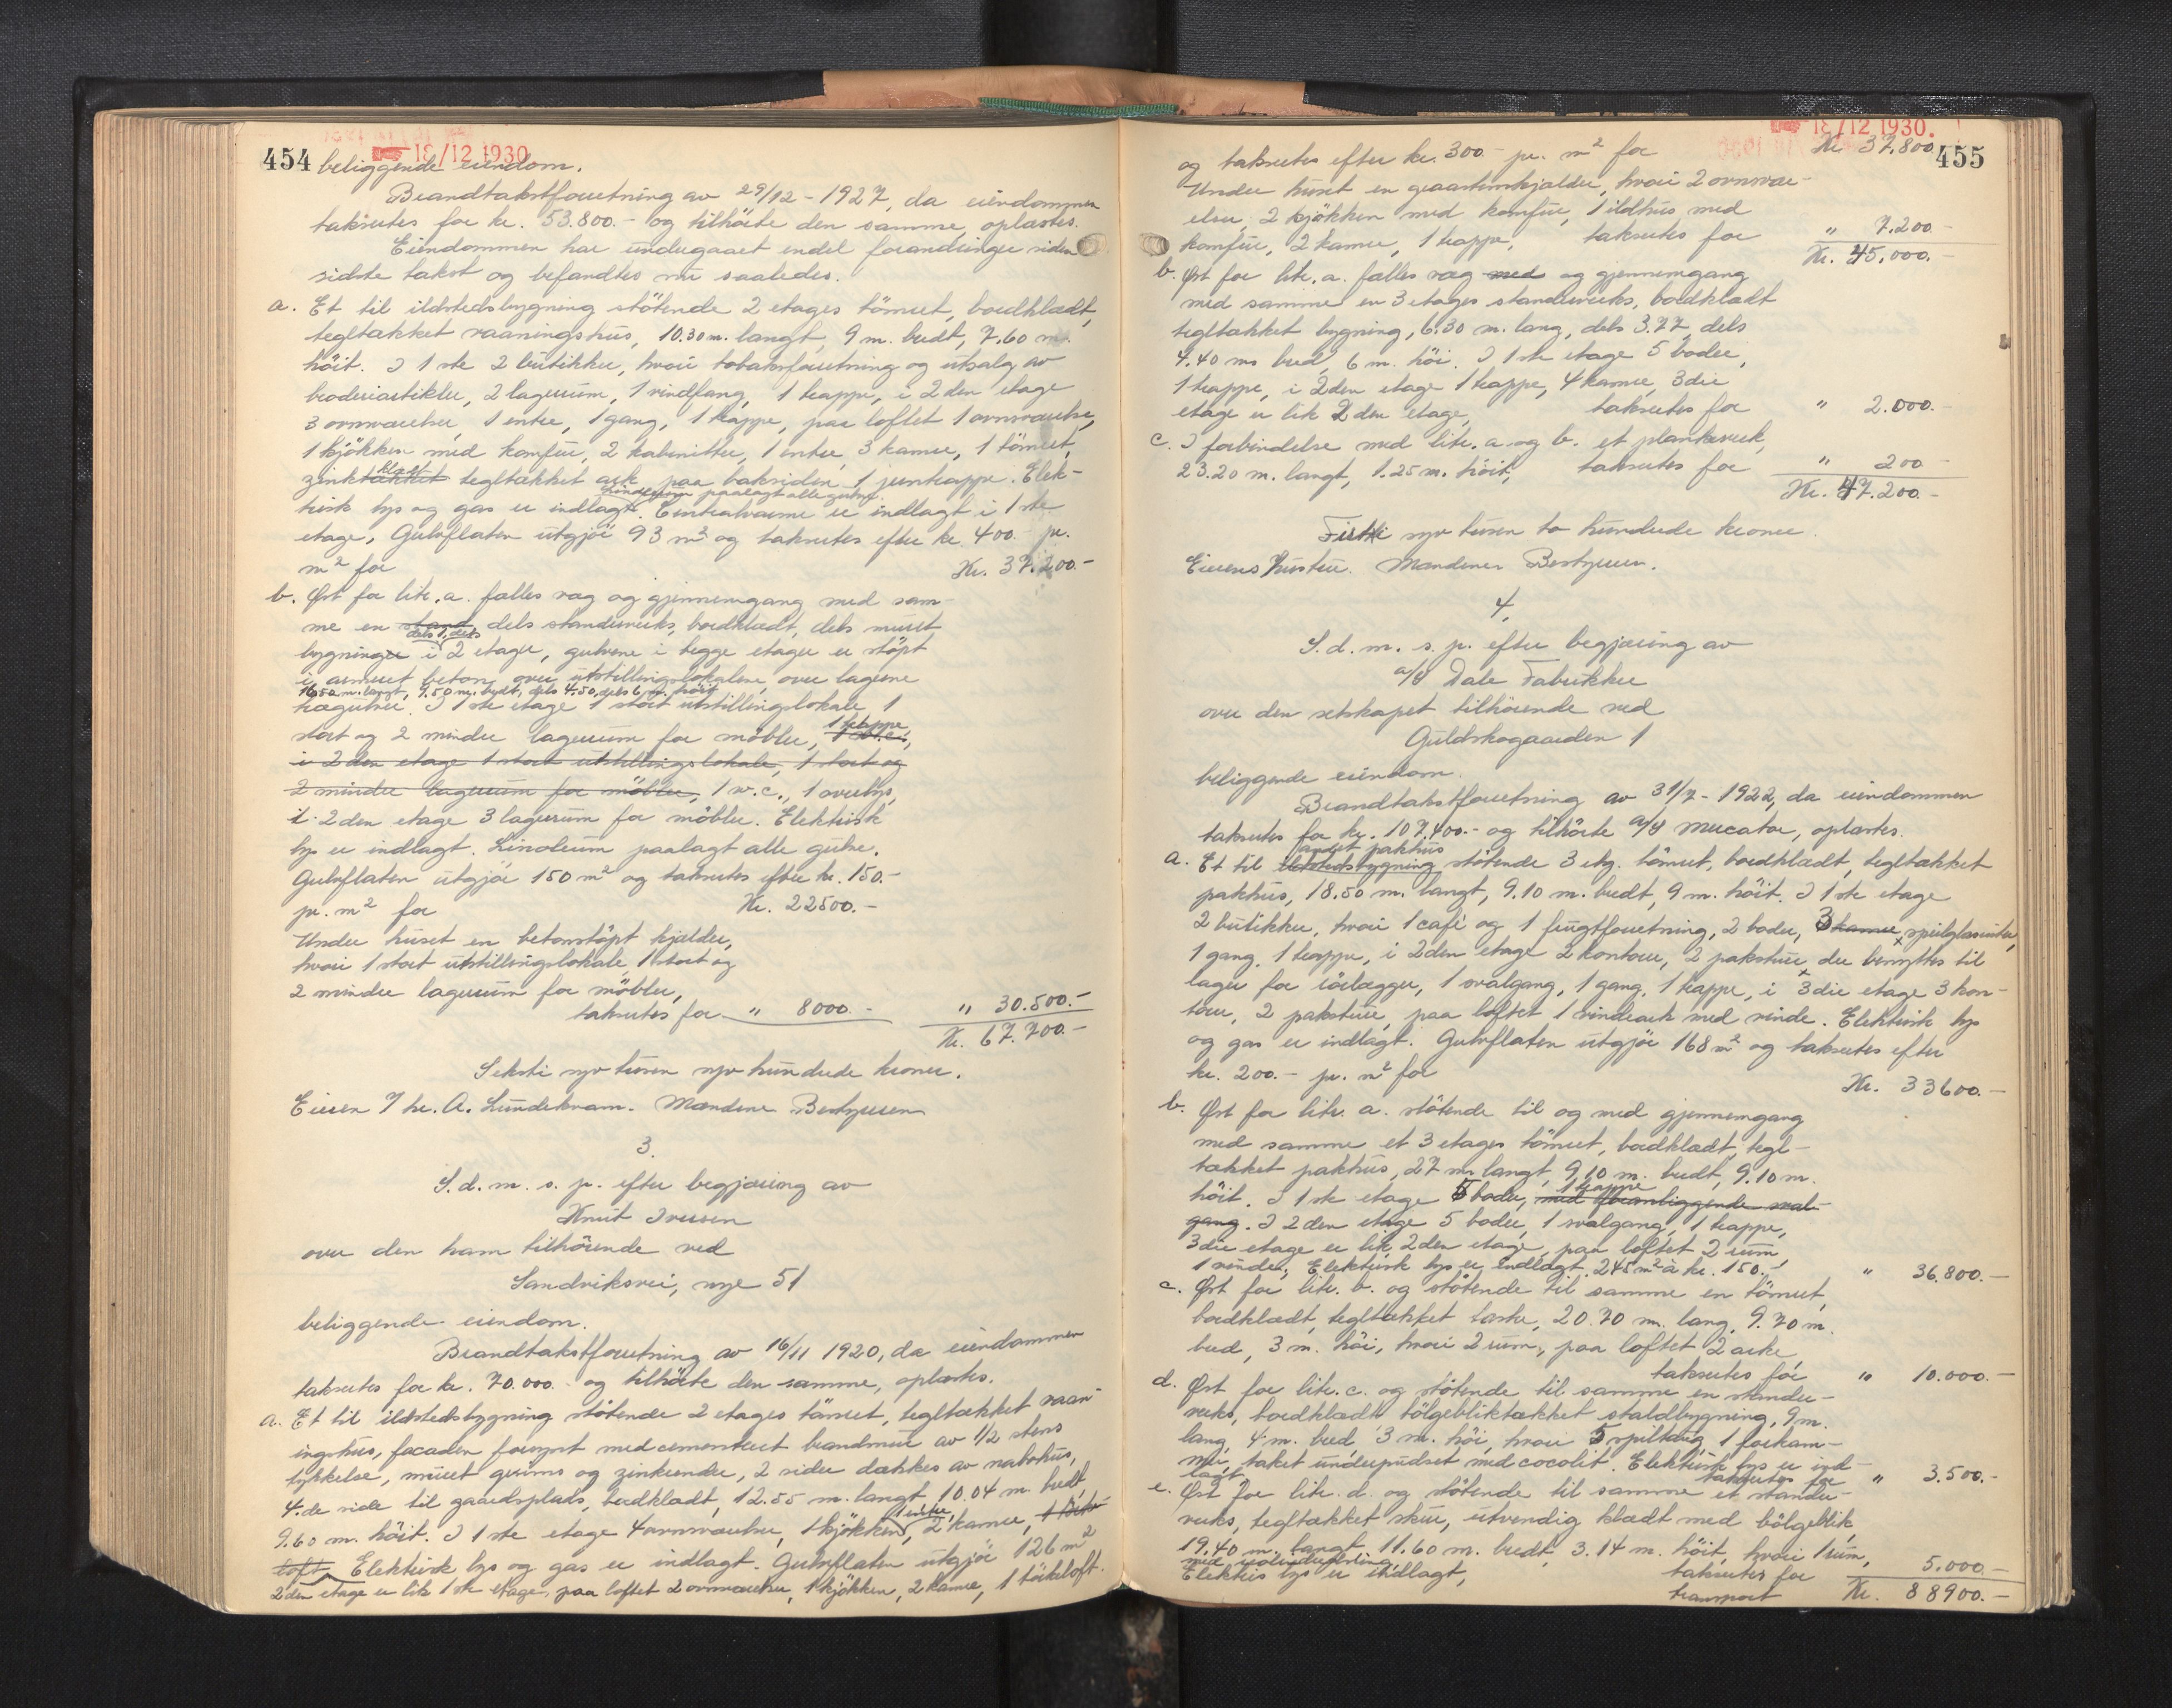 454 18/12 1930
beliggende eiendom.
Brandtakstforretning av 29/12 - 1927, da eiendommen
taksertes for kr. 53.800.- og tilhörte den samme, oplæstes.
Eiendommen har undergaaet endel forandringer siden
sidste takst og befandtes nu saaledes.
a. Et til ildstedsbygning stötende 2 etages tömret, bordklædt,
tegltækket vaaningshus, 10.30 m. langt, 9 m. bredt, 7.60 m.
höit. I 1ste 2 butikker, hvori tobaksforretning og utsalg av
broderiartikler, 2 lagerrum, 1 vindfang, 1 trappe, i 2den etage
3 ovnsværelser, 1 entre, 1 gang, 1 trappe, paa loftet 1 ovnsværelse,
1 kjökken med komfur, 2 kabinetter, 1 entre, 3 kamre, 1 tömret,
zinktækket klædt tegltækket ark paa baksiden, 1 jerntrappe. Elek-
trisk lys og gas er indlagt. Linoleum paalagt alle gulve. Centralvarme er indlagt i 1ste
etage, Gulvflaten utgjör 93 m² og taksertes efter kr. 400.- pr.
m² for Kr. 37.200.-
b. Öst for litr. a. fælles væg og gjennemgang med sam-
me en stand dels standerverks, bordklædt, dels muret
bygninger i dels 1, dels 2 etager, gulvene i begge etager er stöpt
i armert beton, over utstillingslokalene, over lagrene
16.50 m. langt, 9.50 m. bredt, dels 4.50, dels 6 m. höit
trægulver. I 1ste etage 1 stort utstillingslokale, 1
stort og 2 mindre lagerrum for möbler, 1 trappe
i 2den etage 1 stort utstillingslokale, 1 stort og
2 mindre lagerrum for möbler, 1 w.c., 1 overlys,
i 2den etage 3 lagerrum for möbler. Elektrisk
lys er indlagt. Linoleum paalagt alle gulve.
Gulvflaten utgjör 150 m² og taksertes efter kr. 150.-
pr. m² for Kr. 22500.-
Under huset en betonstöpt kjælder,
hvori 1 stort utstillingslokale, 1 stort og
2 mindre lagerrum for möbler,
taksertes for " 8000.- " 30.500.-
Kr. 67.700.-
Seksti syv tusen syv hundrede kroner.
Eieren Thr. A. Lundekvam. Mændene Bestyreren
3.
S. d. m. s. p. efter begjæring av
Knut Iversen
over den ham tilhörende ved
Sandviksvei, nye 51
beliggende eiendom.
Brandtakstforretning av 16/11 1920, da eiendommen
taksertes for kr. 70.000.- og tilhörte den samme, oplæstes.
a. Et til ildstedsbygning stötende 2 etages tömret, tegltækket vaan-
ingshus, facaden forsynt med cementert brandmur av 1/2 stens
tykkelse, muret gesims og zinkrender, 2 sider dækkes av nabohus,
4.de side til gaardsplads, bordklædt, 12.55 m. langt, 10.04 m. bredt,
9.60 m. höit. I 1ste etage 4 ovnsværelser, 1 kjökken, 1 entre, 2 kamre, 1 törk-
loft Elektrisk lys og gas er indlagt. Gulvflaten utgjör 126 m²
2den etage er lik 1ste etage, paa loftet 2 ovnsværelser, 1 kjökken, 2 kamre, 1 törkeloft.
18/12 1930. 455
og taksertes efter kr. 300.- pr. m² for Kr. 37.800.
Under huset en graastenskjælder, hvori 2 ovnsvær-
elser, 2 kjökken med komfur, 1 ildhus med
komfur, 2 kamre, 1 trappe, taksertes for " 7.200.-
Kr. 45.000.-
b. Öst for litr. a. fælles væg med og gjennemgang
med samme en 3 etages standerverks, bordklædt
tegltækket bygning, 6.30 m. lang, dels 3.77, dels
4.40 m. bred, 6 m. höi. I 1ste etage 5 boder,
1 trappe, i 2den etage 1 trappe, 4 kamre, 3die
etage er lik 2den etage, taksertes for " 2.000.-
c. I forbindelse med litr. a og b. et plankeverk,
23.20 m. langt, 1.25 m. höit, taksertes for " 200.-
Kr. 47.200.-
Firti syv tusen to hundrede kroner.
Eierens hustru. Mændenes Bestyreren.
4.
S. d. m. s. p. efter begjæring av
a/s Dale Fabrikker
over den selskapet tilhörende ved
Guldskogaarden 1
beliggende eiendom.
Brandtakstforretning av 31/7 - 1922, da eiendommen
taksertes for kr. 107.400.- og tilhörte a/s Mercator, oplæstes.
a. Et til ildstedsbygning andet pakhus stötende 3 etg. tömret, bordklædt, tegltækket
pakhus, 18.50 m. langt, 9.10 m. bredt, 9 m. höit. I 1ste etage
2 butikker, hvori 1 café og 1 frugtforretning, 2 boder, 3 kamre speilglasruter,
1 gang, 1 trappe, i 2den etage 2 kontorer, 2 pakstuer der benyttes til
lager for 1 svalgang, 1 gang, 1 trappe, i 3die etage 3 kon-
torer, 2 pakstuer, paa loftet 1 vindeark med vinde. Elektrisk lys
og gas er indlagt. Gulvflaten utgjör 168 m² og taksertes efter
kr. 200.- pr. m² for Kr. 33600.-
b. Öst for litr. a. stötende til og med gjennemgang
med samme et 3 etages tömret, bordklædt, tegl-
tækket pakhus, 27 m. langt, 9.10 m. bredt, 9.10 m.
höit. I 1ste etage 5 boder, 1 trappe med foranliggende sval-
gang. I 2den etage 5 boder, 1 svalgang, 1 trappe,
3die etage er lik 2den etage, paa loftet 2 rum
1 vinde. Elektrisk lys er indlagt. 245 m² à kr. 150.- " 36.800.-
c. Öst for litr. b. og stötende til samme en tömret,
bordklædt, tegltækket 20.70 m. lang, 9.70 m.
bred, 3 m. höi, hvori 2 rum, paa loftet 2 arke
taksertes for " 10.000.-
d. Öst for litr. c. og stötende til samme en stander-
verks, bordklædt bölgebliktækket staldbygning, 9 m.
lang, 4 m. bred, 3 m. höi, hvori 5 spiltaug, 1 forkam-
mer, taket underpudset med cocolit. Elektrisk lys er ind-
lagt, taksertes for " 3.500.-
e. Öst for litr. d. og stötende til samme et stander-
verks, tegltækket skur, utvendig klædt med bölgeblik,
19.40 m. langt, 11.60 m. bredt, 3.14 m. höit, hvori 1 rum,
Elektris lys er indlagt, taksertes for 5.000.-
transport Kr. 88900.-